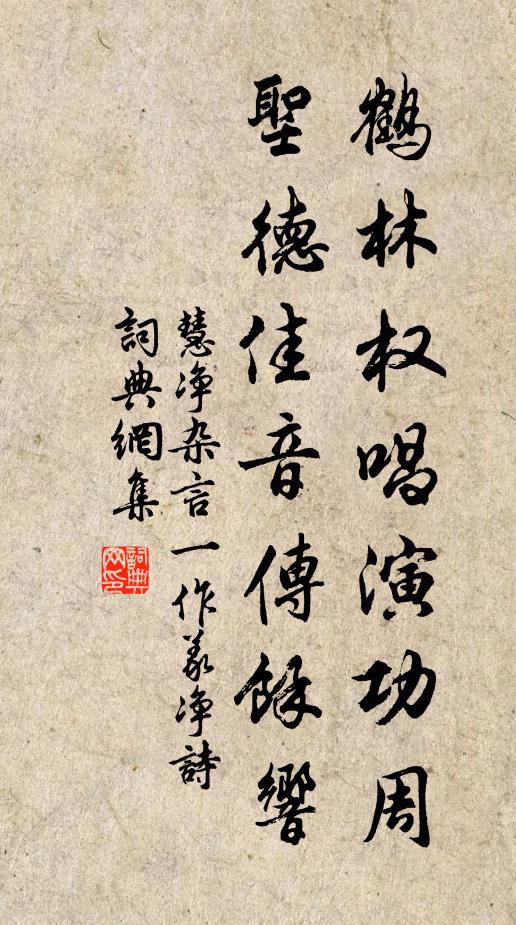 鶴林权唱演功周
聖德佳音傳餘響
慧净杂言一作义净詩
詞典網集
詞典网印